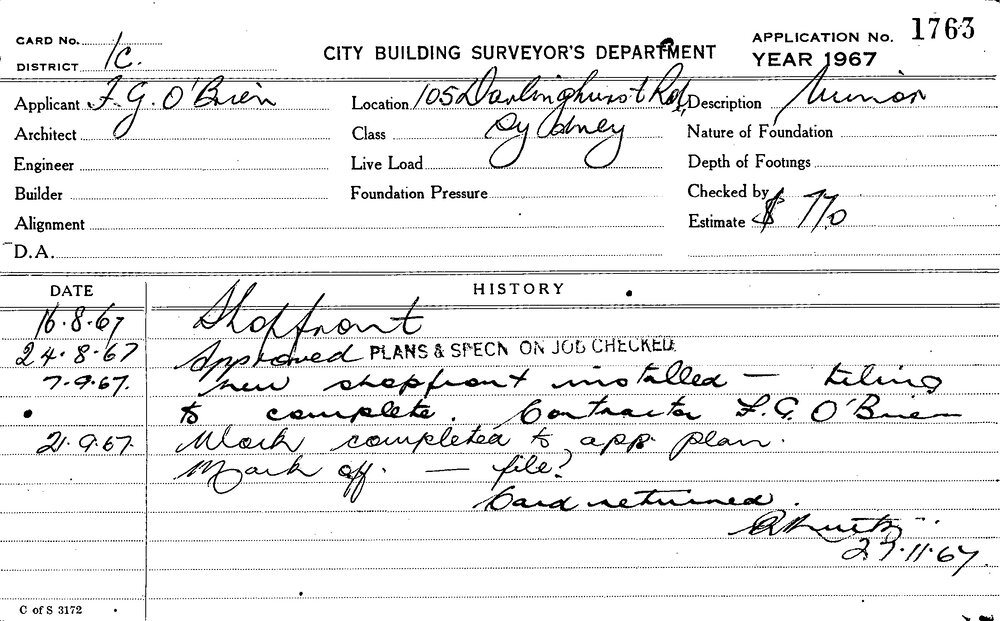 CARD No.
DISTRICT 1C.
CITY BUILDING SURVEYOR'S DEPARTMENT
APPLICATION No. 1763
YEAR 1967
Applicant F. G. O'Brien
Location 105 Darlinghurst Rd,
Description Minor
Architect
Class Sydney
Nature of Foundation
Engineer
Live Load
Depth of Footings
Builder
Foundation Pressure
Checked by
Alignment
Estimate $ 770
D.A.
DATE HISTORY
16.8.67 Shopfront
24.8.67 Approved PLANS & SPECN ON JOB CHECKED
7.9.67. new shopfront installed — tiling
to complete. Contractor F.G. O'Brien
21.9.67. Work completed to app. plan.
Mark off. — file?
Card returned.
11.67.
C of S 3172